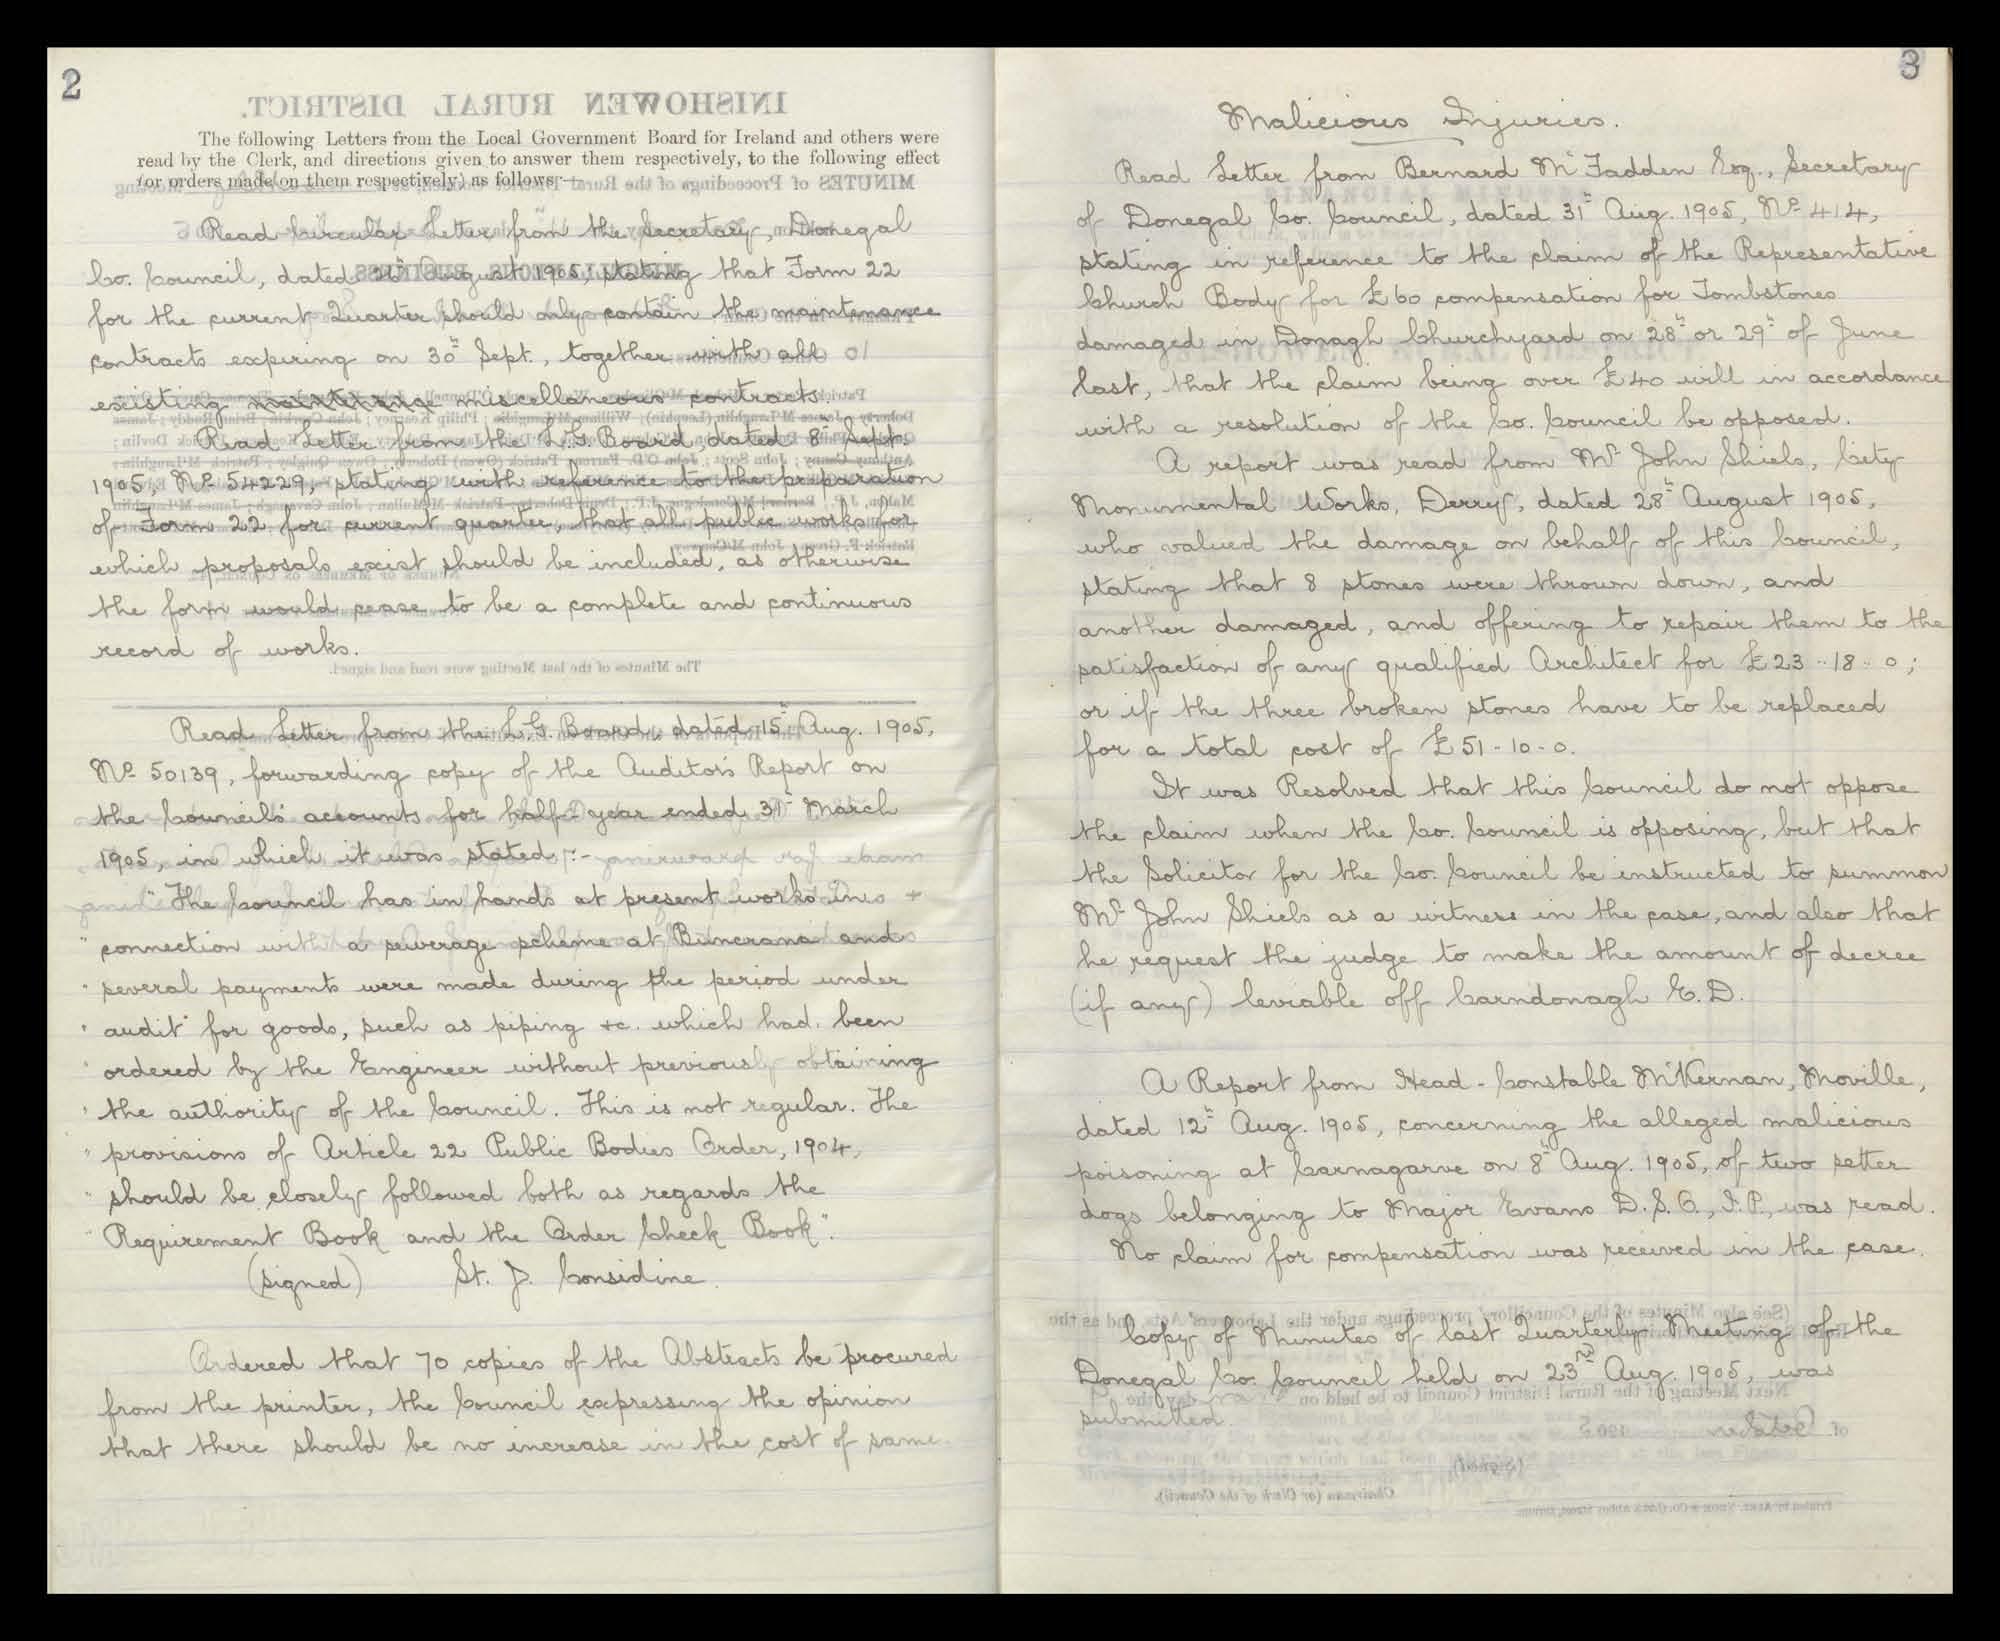 2
The following Letters from the Local Government Board for Ireland and others were
read by the Clerk, and directions given to answer them respectively, to the following effect
(or orders made on them respectively) as follows:—
Read Circular Letter from the Secretary, Donegal
Co. Council, dated August 1905, stating that Form 22
for the current Quarter should only contain the maintenance
contracts expiring on 30th Sept., together with all
existing miscellaneous contracts.
Read Letter from the L.G. Board, dated 8th Sept.
1905, No. 54229, stating with reference to the preparation
of Form 22 for current quarter, that all public works for
which proposals exist should be included, as otherwise
the form would cease to be a complete and continuous
record of works.
Read Letter from the L.G. Board, dated 15th Aug. 1905,
No. 50139, forwarding copy of the Auditor's Report on
the Council's accounts for half-year ended 31st March
1905, in which it was stated :-
"The Council has in hands at present works in
" connection with a sewerage scheme at Buncrana and
" several payments were made during the period under
" audit for goods, such as piping &c. which had been
" ordered by the Engineer without previously obtaining
" the authority of the Council. This is not regular. The
" provisions of Article 22 Public Bodies Order, 1904,
" should be closely followed both as regards the
" Requirement Book and the Order Check Book".
(signed) St. J. Considine.
Ordered that 70 copies of the Abstracts be procured
from the printer, the Council expressing the opinion
that there should be no increase in the cost of same.
3
Malicious Injuries.
Read Letter from Bernard McFadden Esq., Secretary
of Donegal Co. Council, dated 31st Aug. 1905, No. 414,
stating in reference to the claim of the Representative
Church Body for £60 compensation for Tombstones
damaged in Donagh Churchyard on 28th or 29th of June
last, that the claim being over £40 will in accordance
with a resolution of the Co. Council be opposed.
A report was read from Mr John Shiels, City
Monumental Works, Derry, dated 28th August 1905,
who valued the damage on behalf of this Council,
stating that 8 stones were thrown down, and
another damaged, and offering to repair them to the
satisfaction of any qualified Architect for £23..18..0;
or if the three broken stones have to be replaced
for a total cost of £51-10-0.
It was Resolved that this Council do not oppose
the claim when the Co. Council is opposing, but that
the Solicitor for the Co. Council be instructed to summon
Mr John Shiels as a witness in the case, and also that
he request the judge to make the amount of decree
(if any) leviable off Carndonagh E.D.
A Report from Head-Constable McKernan, Moville,
dated 12th Aug. 1905, concerning the alleged malicious
poisoning at Carnagarve on 8th Aug. 1905, of two setter
dogs belonging to Major Evans D.S.O., J.P., was read.
No claim for compensation was received in the case.
Copy of Minutes of last Quarterly Meeting of the
Donegal Co. Council held on 23rd Aug. 1905, was
submitted.